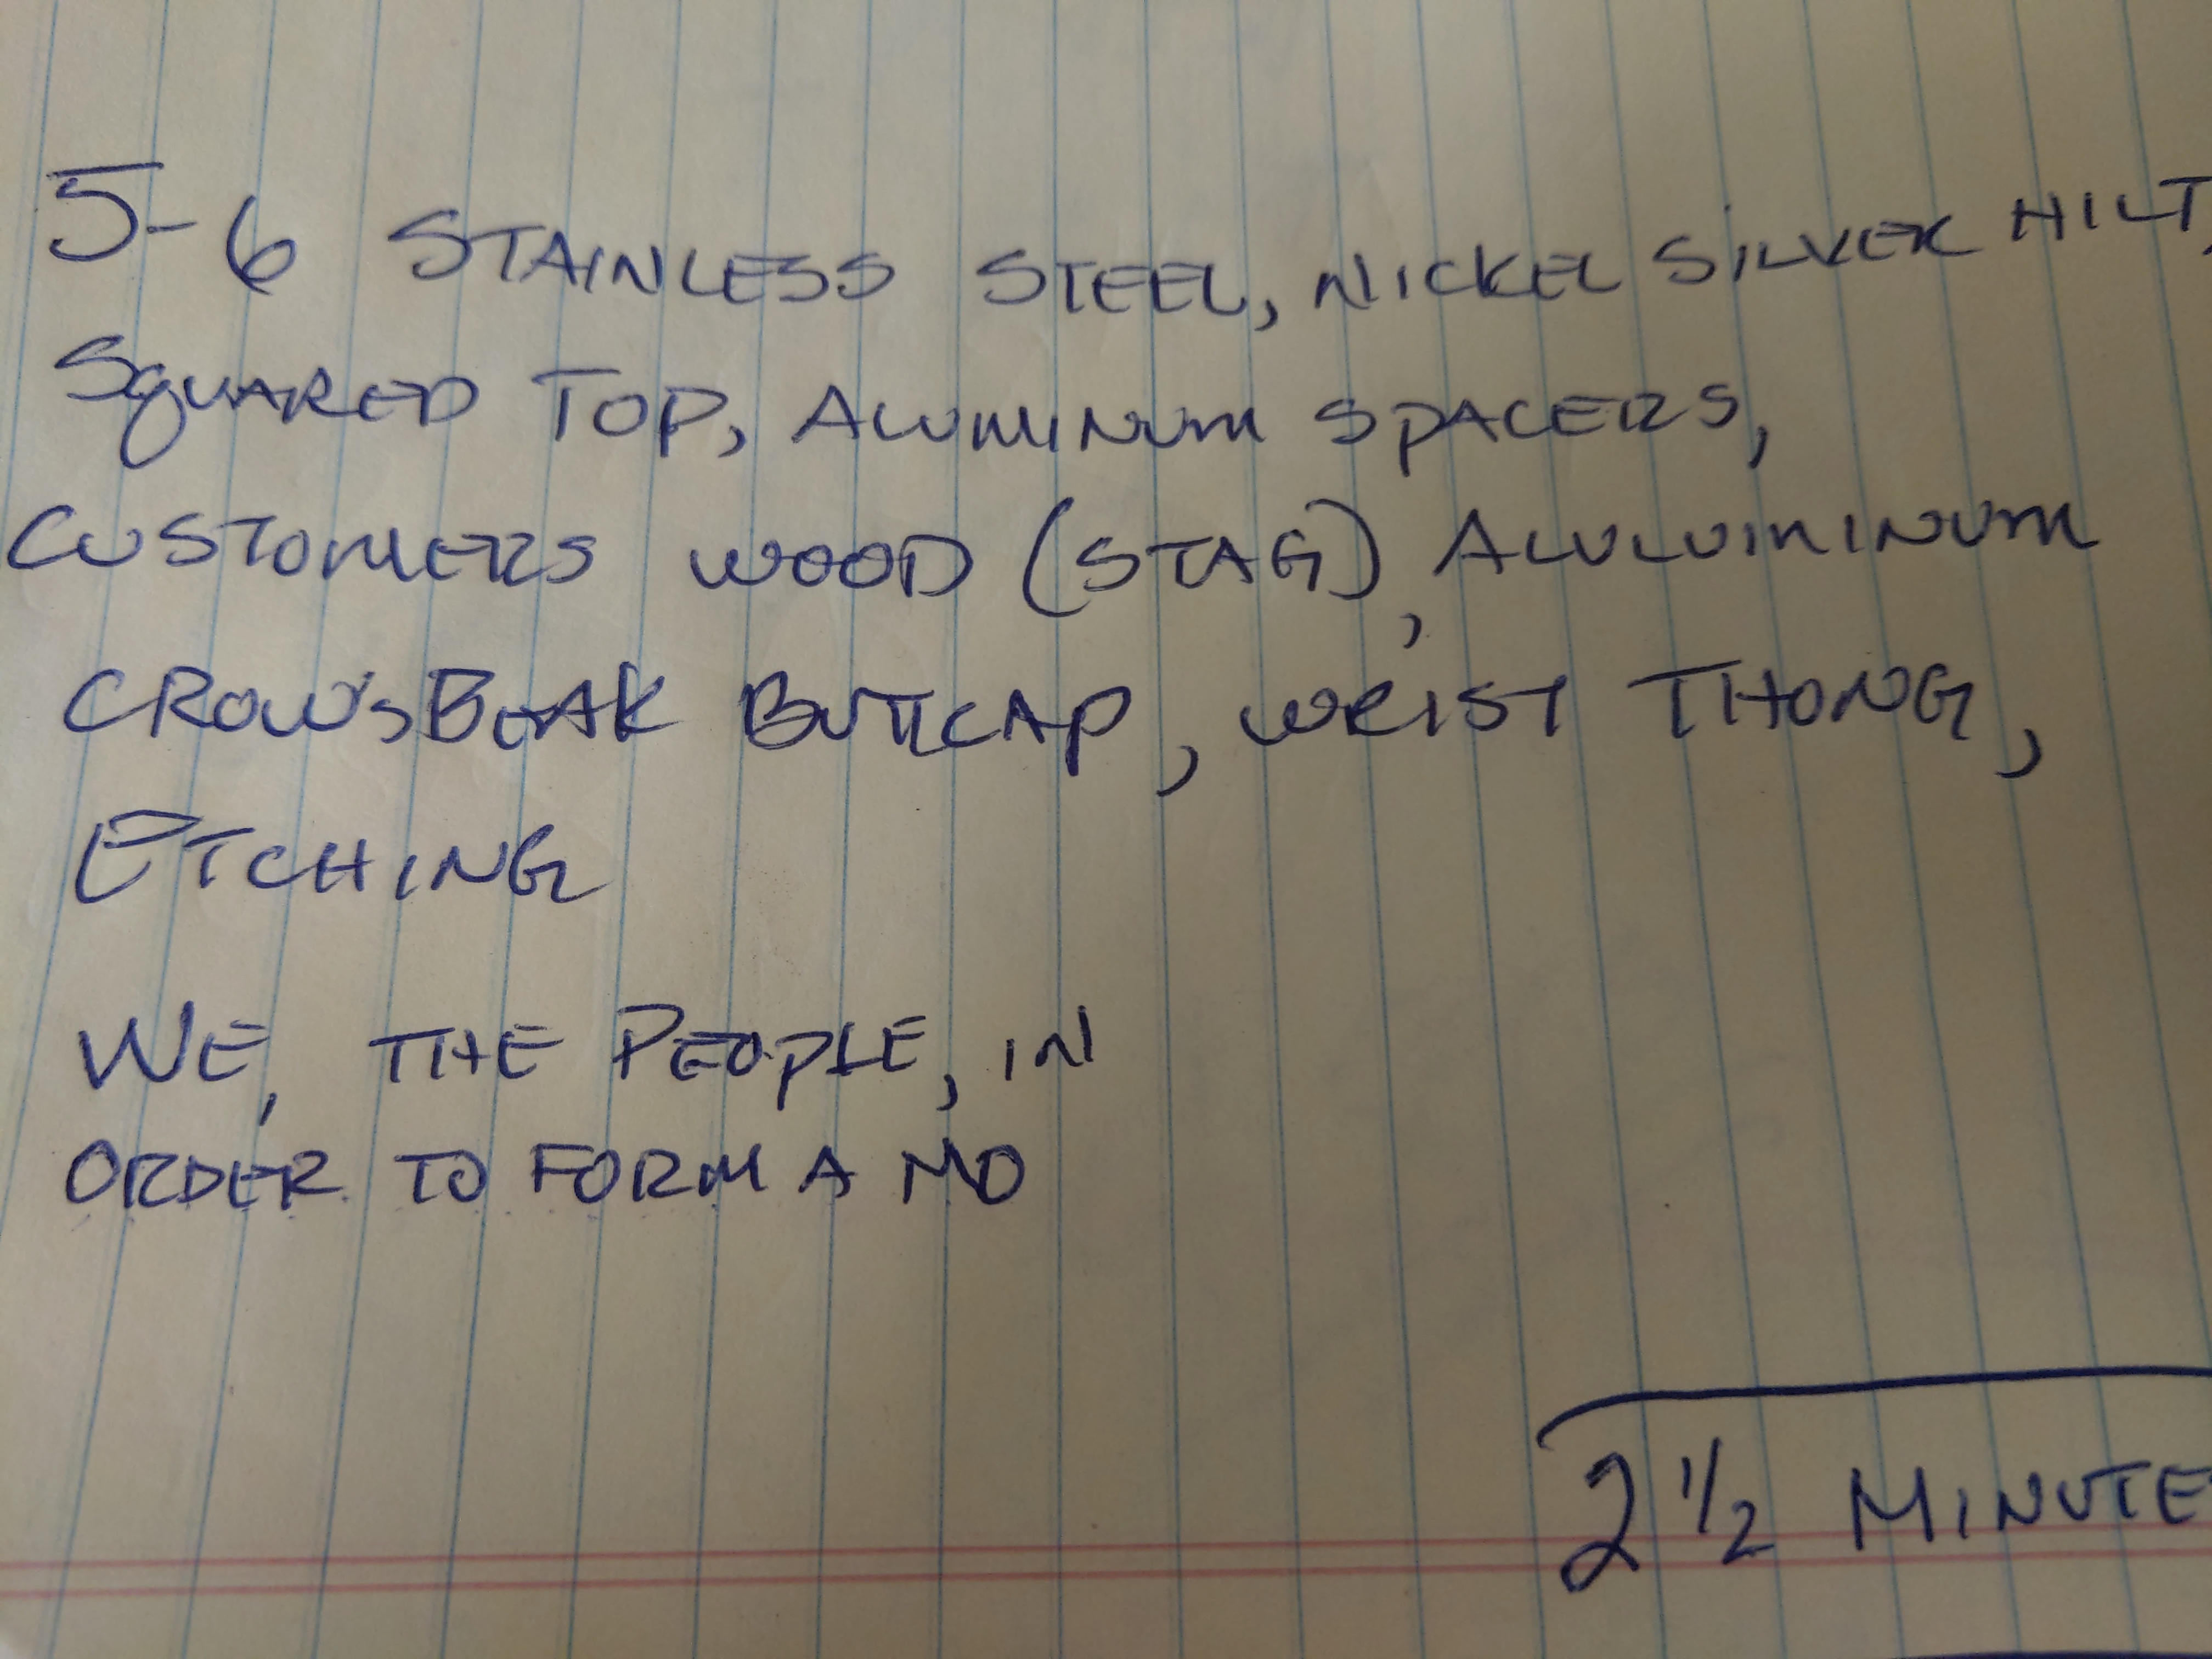 5-6 STAINLESS STEEL, NICKEL SILVER HILT,
SQUARED TOP, ALUMINUM SPACERS,
CUSTOMERS WOOD (STAG), ALULUIMINUM
CROW'S BEAK BUTTCAP, WRIST THONG,
ETCHING
WE, THE PEOPLE, IN
ORDER TO FORM A MO
2 1/2 MINUTE